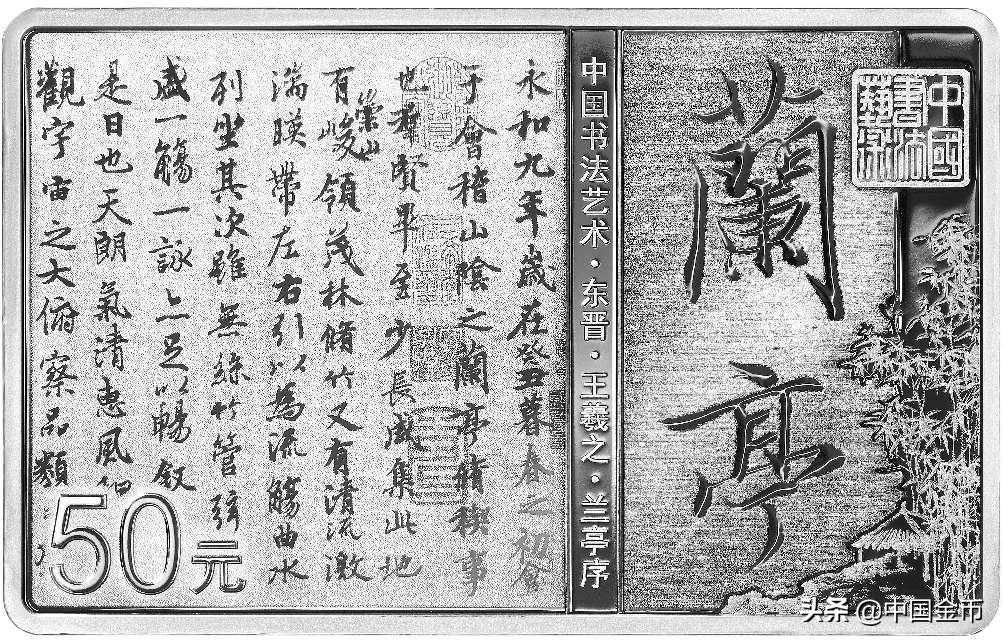 中國書法藝術
蘭亭
中国书法艺术·东晋·王羲之·兰亭序
永和九年歲在癸丑暮春之初會
于會稽山陰之蘭亭脩稧事
也群賢畢至少長咸集此地
有崇山峻領茂林脩竹又有清流激
湍暎帶左右引以為流觴曲水
列坐其次雖無絲竹管弦
盛一觴一詠亦足以暢叙
是日也天朗氣清惠風和
觀宇宙之大俯察品類
50元
头条 @中国金币